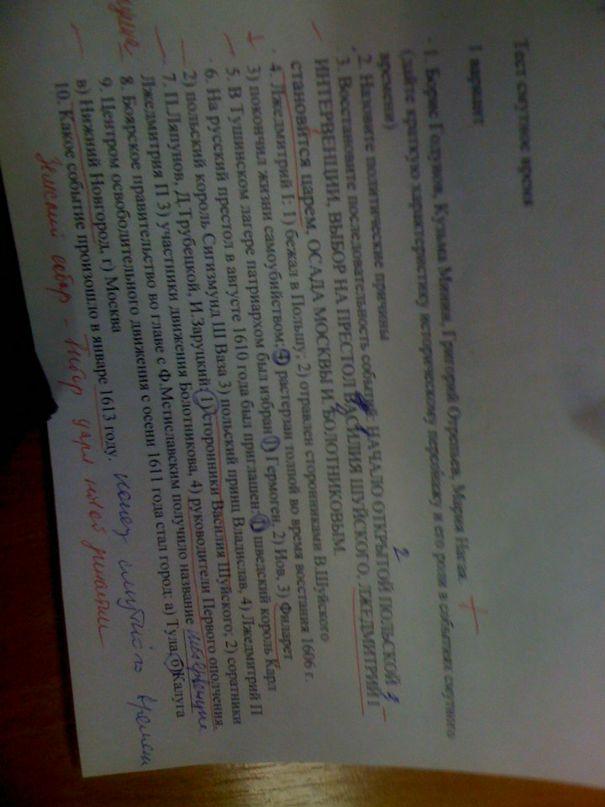 Тест смутное время
1 вариант
1. Борис Годунов, Кузьма Минин, Григорий Отрепьев, Мария Нагая.
(дайте краткую характеристику историческому персонажу и его роли в событиях смутного
времени)
2. Назовите политические причины
3. Восстановите последовательность событий: НАЧАЛО ОТКРЫТОЙ ПОЛЬСКОЙ
ИНТЕРВЕНЦИИ, ВЫБОР НА ПРЕСТОЛ ВАСИЛИЯ ШУЙСКОГО, ЛЖЕДМИТРИЙ I
становится царем, ОСАДА МОСКВЫ И. БОЛОТНИКОВЫМ.
4. Лжедмитрий I: 1) бежал в Польшу; 2) отравлен сторонниками В.Шуйского
3) покончил жизни самоубийством; 4) растерзан толпой во время восстания 1606 г.
5. В Тушинском лагере патриархом был избран 1) Гермоген, 2) Иов, 3) Филарет
6. На русский престол в августе 1610 года был приглашен: 1) шведский король Карл
2) польский король Сигизмунд III Ваза 3) польский принц Владислав, 4) Лжедмитрий П
7. П.Ляпунов, Д.Трубецкой, И.Заруцкий: 1) Сторонники Василия Шуйского; 2) соратники
Лжедмитрия П 3) участники движения Болотникова, 4) руководители Первого ополчения.
8. Боярское правительство во главе с Ф.Мстиславским получило название
9. Центром освободительного движения с осени 1611 года стал город: а) Тула б) Калуга
в) Нижний Новгород, г) Москва
10. Какое событие произошло в январе 1613 году. конец смутного времени
Земский собор - выбор царя новой династии